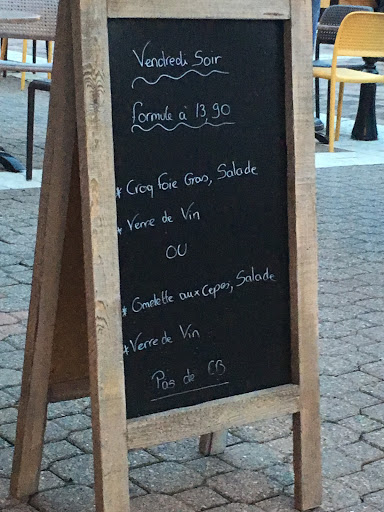 Vendredi Soir
formule à 13,90
* Croq Foie Gras, Salade
* Verre de Vin
OU
* Omelette aux Cepes, Salade
* Verre de Vin
Pas de CB